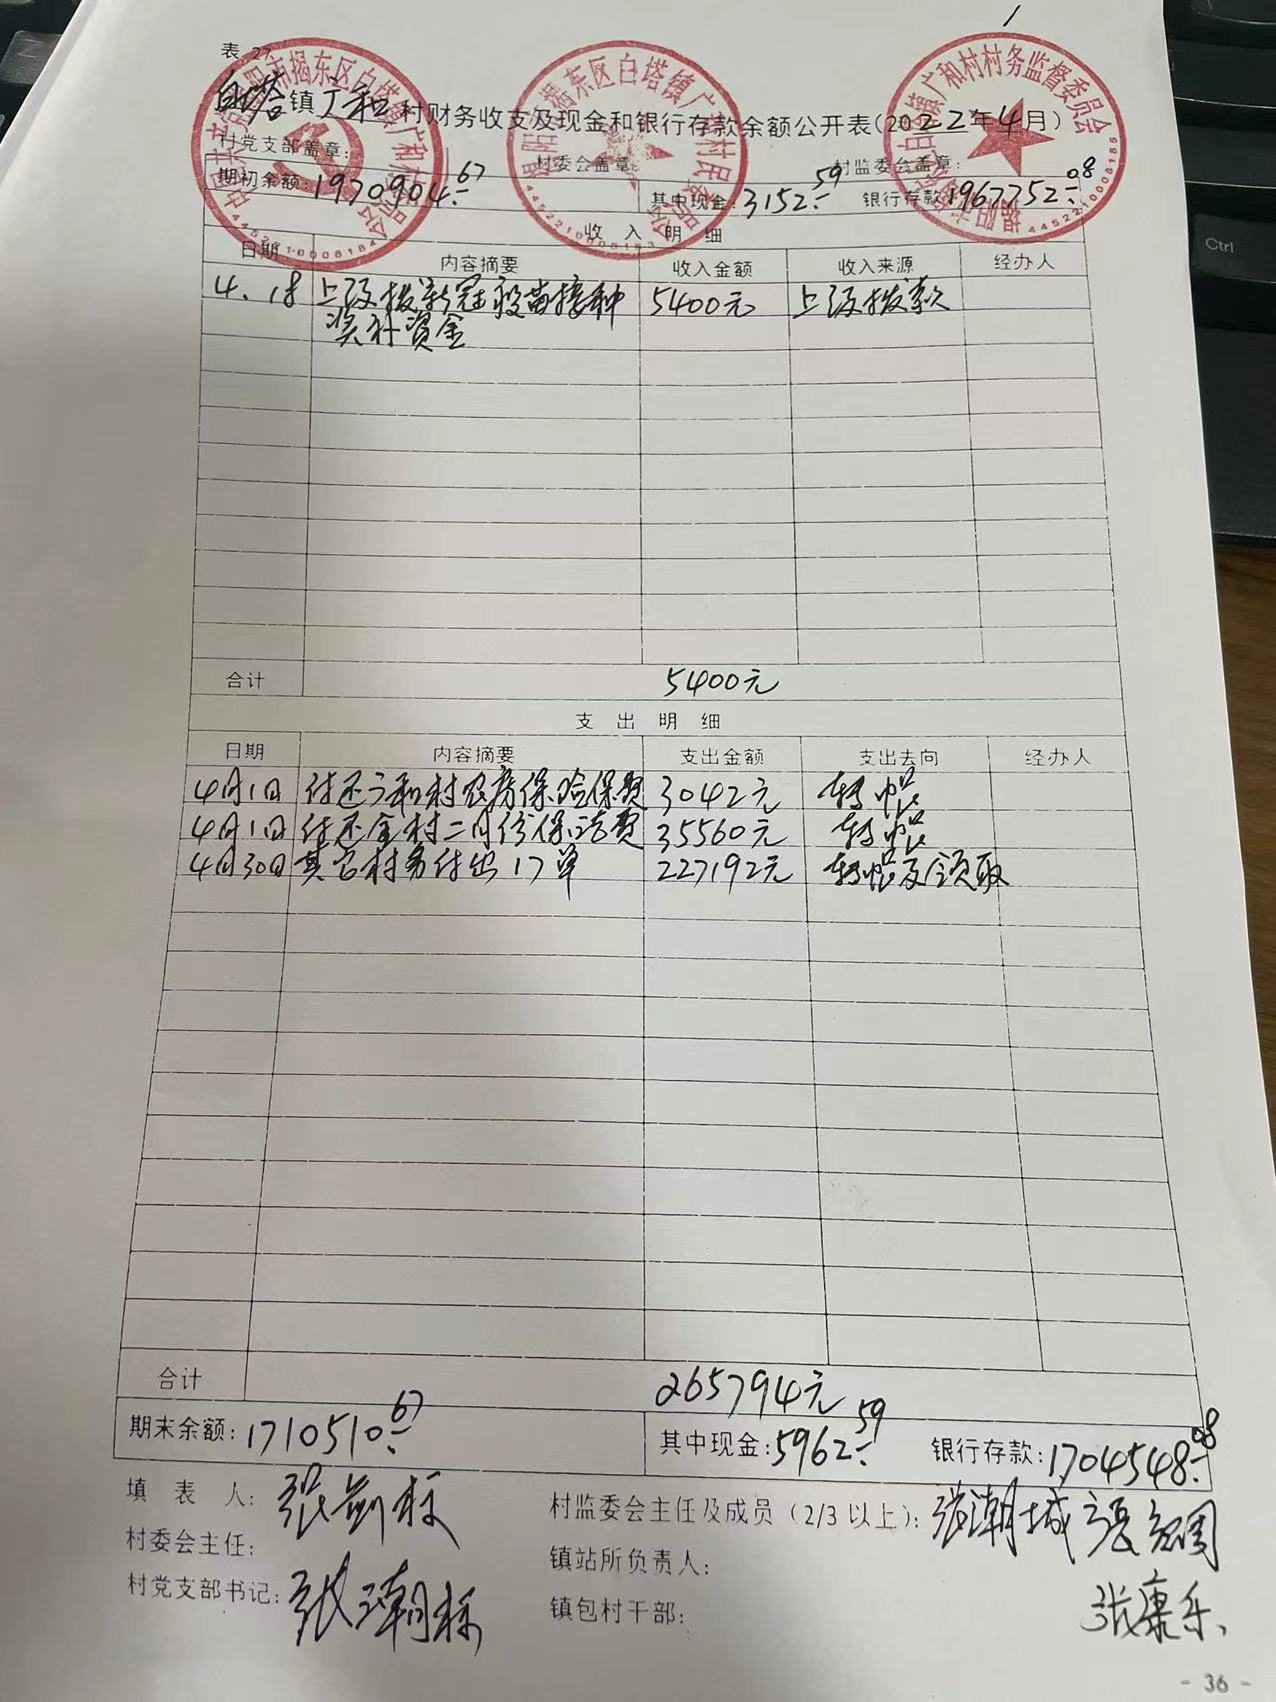 1
表 27
白塔镇广和村财务收支及现金和银行存款余额公开表(2022年4月)
村党支部盖章: 村委会盖章: 村监委会盖章:
期初余额:1970904.67 其中现金:3152.59 银行存款:1967752.08
收 入 明 细
日期 内容摘要 收入金额 收入来源 经办人
4.18 上级拨新冠疫苗接种 5400元 上级拨款
奖补资金
合计 5400元
支 出 明 细
日期 内容摘要 支出金额 支出去向 经办人
4月1日 付还广和村农房保险保费 3042元 转帐
4月1日 付还全村二月份保洁费 35560元 转帐
4月30日 其它村务付出17单 227192元 转帐及领取
合计 265794元
期末余额:1710510.67 其中现金:5962.59 银行存款:1704548.08
填 表 人: 张
村监委会主任及成员(2/3以上): 张潮城
村委会主任:
镇站所负责人:
村党支部书记: 张潮标
镇包村干部:
张康乐
- 36 -
揭东区白塔镇广和村
4452210008184
4452210008183
白塔镇广和村村务监督委员会
4452210008185
Ctrl